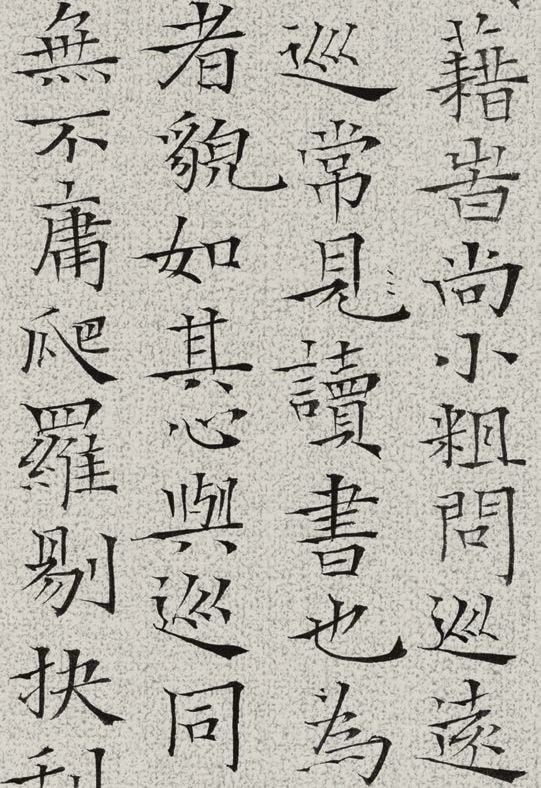 藉旹尚小粗問巡遠
巡常見讀書也為
者貌如其心與巡同
無不庸爬羅剔抉